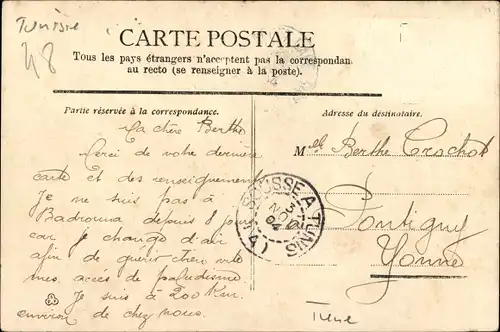 Tunisie
48
CARTE POSTALE
Tous les pays étrangers n'acceptent pas la correspondan
au recto (se renseigner à la poste).
Partie réservée à la correspondance.
Adresse du destinataire.
Ma chère Berthe
Merci de votre dernière
carte et des renseignements
Je ne suis pas à
Badrouna depuis 8 jours
car je change d'air
afin de guérir bien vite
mes accès de paludisme.
Je suis à 200 Km.
environ de chez nous.
Melle Berthe Crochot
Pontigny
Yonne
SOUSSE A TUNIS